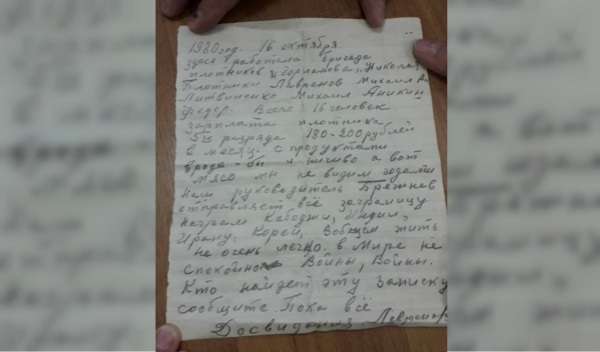 1980 год. 16 октября.
Здесь работала бригада
плотников Горланова Николая
Плотники Лавренов Михаил
Литвиненко Михаил Аникин
Федор. Всего 16 человек.
зарплата плотника
5го разряда 180-200 рублей
в месяц. с продуктами
вроде-бы и ничиво а вот
мясо мы не видим годами
нам руководитель Брежнев
отправляет всё заграницу
неграм Кабоджи, Индии,
Ирану, Кореи, Вобщем жить
не очень легко. в Мире не
спокойно Войны, Войны.
Кто найдет эту Записку
сообщите Пока всё
Досвидания Лавренов